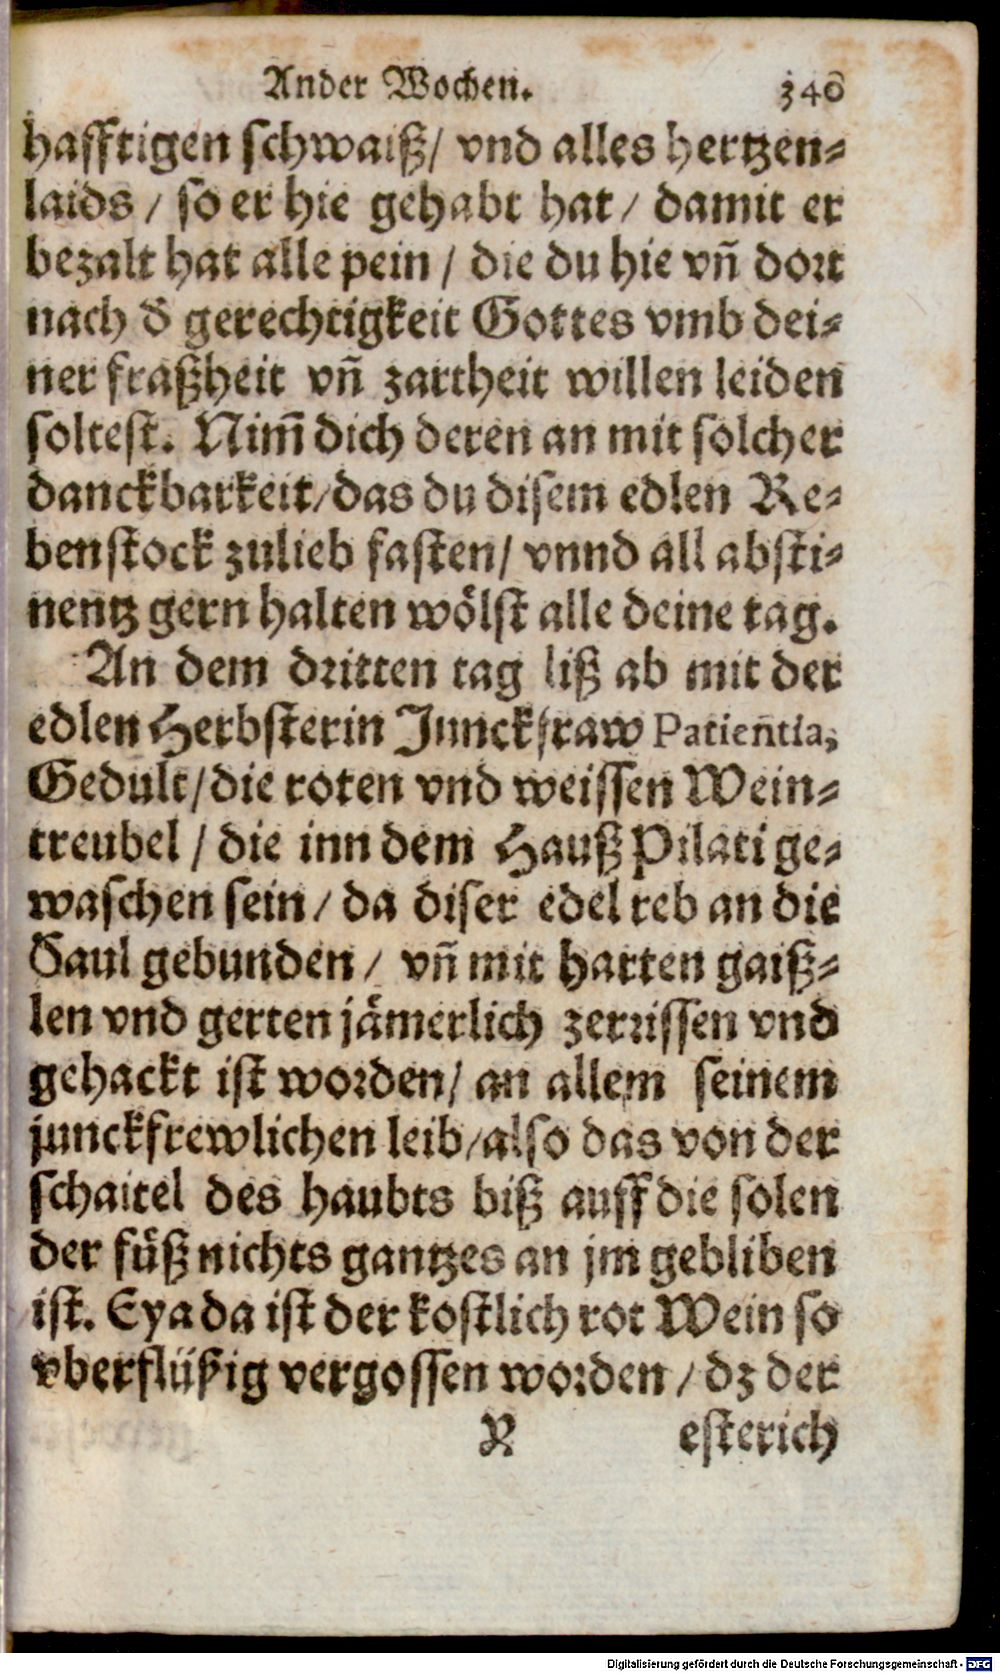 Ander Wochen. 340
hafftigen schwaiß/ vnd alles hertzen-
laids / so er hie gehabt hat / damit er
bezalt hat alle pein / die du hie vñ dort
nach d̓ gerechtigkeit Gottes vmb dei-
ner fraßheit vñ zartheit willen leiden
soltest. Nim̃ dich deren an mit solcher
danckbarkeit/das du disem edlen Re-
benstock zulieb fasten/ vnnd all absti-
nentz gern halten wölst alle deine tag.
An dem dritten tag liß ab mit der
edlen Herbsterin Junckfraw Patien̄tia,
Gedult/die roten vnd weissen Wein-
treubel / die inn dem Hauß Pilati ge-
waschen sein / da diser edel reb an die
Saul gebunden / vñ mit harten gaiß-
len vnd gerten jämerlich zerrissen vnd
gehackt ist worden/ an allem seinem
junckfrewlichen leib/also das von der
schaitel des haubts biß auff die solen
der füß nichts gantzes an jm gebliben
ist. Eya da ist der kostlich rot Wein so
vberflüßig vergossen worden / dz der
X esterich
Digitalisierung gefördert durch die Deutsche Forschungsgemeinschaft - DFG